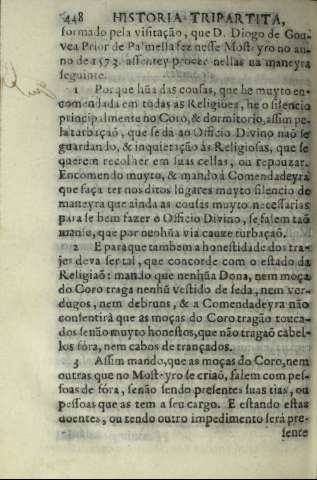 448 HISTORIA TRIPARTITA,
formado pela visitação, que D. Diogo de Gou-
vea Prior de Palmella fez nesse Most-yro no an-
no de 1573. assentey prover nellas na maneyra
seguinte.
1 Porque hũa das cousas, que he muyto en-
comendada em todas as Religiões, he o silencio
principalmente no Coro, & dormitorio, assim pe-
la turbaçaõ, que se dá ao Officio Divino naõ se
guardando, & inquietaçaõ às Religiosas, que se
querem recolher em suas cellas, ou repouzar.
Encomendo muyto, & mando á Comendadeyra
que faça ter nos ditos lugares muyto silencio de
maneyra que ainda as cousas muyto necessarias
para se bem fazer o Officio Divino, se falem taõ
manso, que por nenhũa via cauze turbaçaõ.
2 E para que tambem a honestidade dos tra-
jes deva ser tal, que concorde com o estado da
Religiaõ: mando que nenhũa Dona, nem moça
do Coro traga nenhũ vestido de seda, nem ver-
dugos, nem debruns, & a Comendadeyra não
consentirá que as moças do Coro tragão touca-
dos senão muyto honestos, que não tragaõ cabel-
los fóra, nem cabos de trançados.
3 Assim mando, que as moças do Coro, nem
outras que no Most-yro se criaõ, falem com pes-
soas de fóra, senão sendo presentes suas tias, ou
pessoas que as tem a seu cargo. E estando estas
doentes, ou tendo outro impedimento será pre-
sente